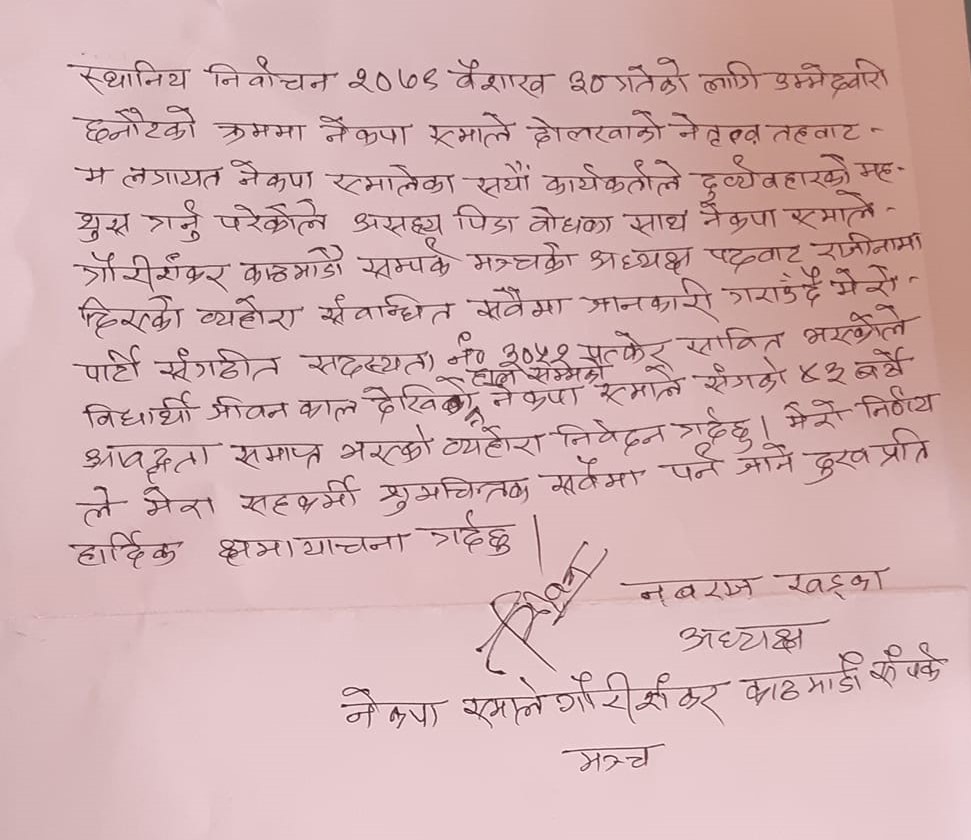 स्थानिय निर्वाचन २०७९ वैशाख ३० गतेको लागि उम्मेदवारी
छनौटको क्रममा नेकपा एमाले दोलखाको नेतृत्व तहवाट -
म लगायत नेकपा एमालेका सयौं कार्यकर्ताले दुर्व्यवहारको मह-
शुस गर्नु परेकोले असह्य पिडा वोधका साथ नेकपा एमाले -
गौरीशंकर काठमाडौ सम्पर्क मञ्चको अध्यक्ष पदवाट राजीनामा
दिएको व्यहोरा संवान्धित सवैमा जानकारी गराउंदै मेरो -
पार्टी संगठीत सदस्यता नं० ३०५१ पत्केर सावित भएकोले
विधार्थी जीवन काल देखिको हाल सम्मको नेकपा एमाले संगको ४२ बर्षे
आवद्धता समाप्त भएको व्यहोरा निवेदन गर्दछु । मेरो निर्णय
ले मेरा सहकर्मी शुभचिन्तक सवैमा पर्न जाने दुःख प्रति
हार्दिक क्षमायाचना गर्दछु |
नवराज खड्का
अध्यक्ष
नेकपा एमाले गौरीशंकर काठमाडौं संपर्क
मञ्च